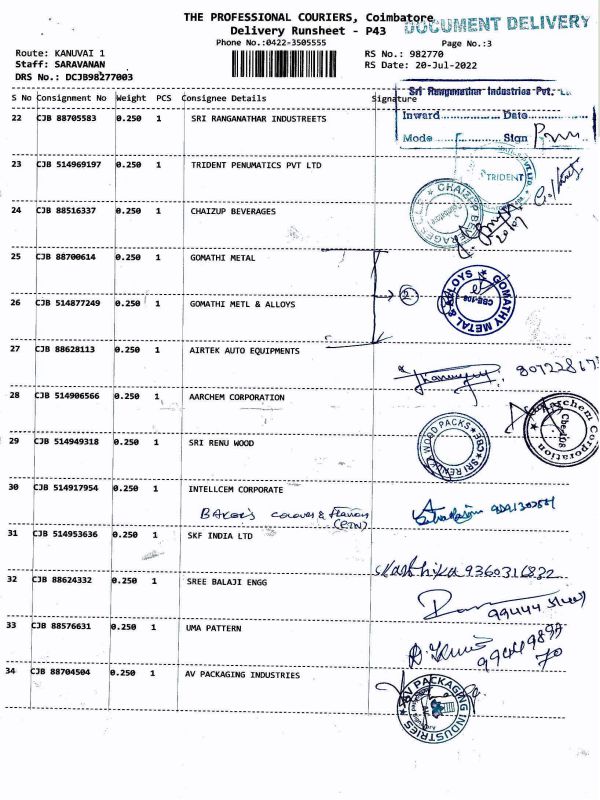 THE PROFESSIONAL COURIERS, Coimbatore
DOCUMENT DELIVERY
Delivery Runsheet - P43
Phone No.:0422-3505555
Page No.:3
Route: KANUVAI 1
RS No.: 982770
Staff: SARAVANAN
RS Date: 20-Jul-2022
DRS No.: DCJB98277003
Sri Ranganathar Industries Pvt.
S No Consignment No Weight PCS Consignee Details Signature
Inward Date
Mode Sign
22 CJB 88705583 0.250 1 SRI RANGANATHAR INDUSTREETS
23 CJB 514969197 0.250 1 TRIDENT PENUMATICS PVT LTD
TRIDENT
24 CJB 88516337 0.250 1 CHAIZUP BEVERAGES
CHAIZUP BEVERAGES LLP
Coimbatore
20/07
25 CJB 88700614 0.250 1 GOMATHI METAL
2
GOMATHY METAL & ALLOYS
CBE-108
26 CJB 514877249 0.250 1 GOMATHI METL & ALLOYS
27 CJB 88628113 0.250 1 AIRTEK AUTO EQUIPMENTS
28 CJB 514906566 0.250 1 AARCHEM CORPORATION
Aarchem Corporation
Cbe-108
29 CJB 514949318 0.250 1 SRI RENU WOOD
SRI RENUKA WOOD PACKS
CBE
30 CJB 514917954 0.250 1 INTELLCEM CORPORATE
Baker's colours & Flavours
(RTN)
31 CJB 514953636 0.250 1 SKF INDIA LTD
Karthika 9360316832
32 CJB 88624332 0.250 1 SREE BALAJI ENGG
33 CJB 88576631 0.250 1 UMA PATTERN
70
34 CJB 88704504 0.250 1 AV PACKAGING INDUSTRIES
AV PACKAGING INDUSTRIES